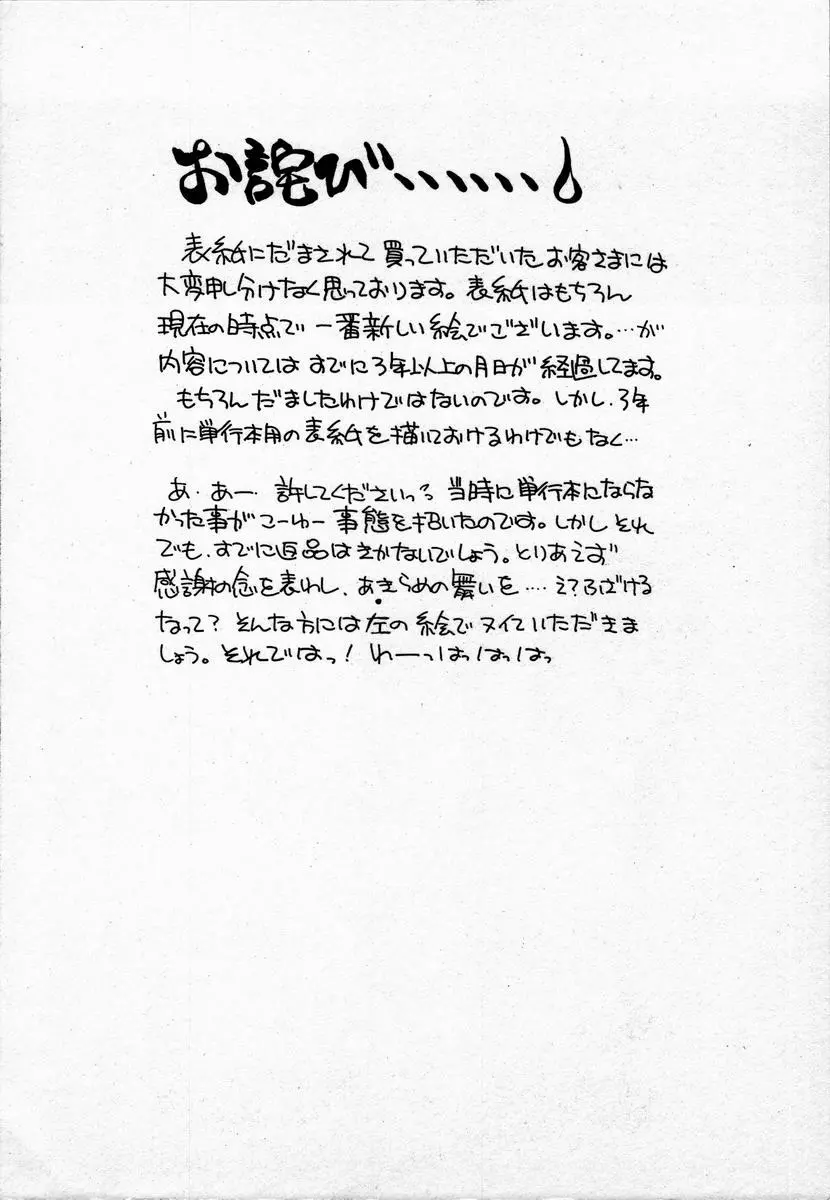 お詫び、、、、、、
表紙にだまされて買っていただいたお客さまには
大変申し分けなく思っております。表紙はもちろん
現在の時点で一番新しい絵でございます。…が
内容についてはすでに3年以上の月日が経過してます。
もちろんだましたわけではないのです。しかし、3年
前に単行本用の表紙を描いておけるわけでもなく…
あ・あー・許してくださいっ。当時に単行本にならな
かった事がこーゆー事態を招いたのです。しかしそれ
でも、すでに返品はきかないでしょう。とりあえず
感謝の念を表わし、あきらめの舞いを……え?ふざける
なって?そんな方には左の絵でヌイていただきま
しょう。それではっ!わーっはっはっはっ